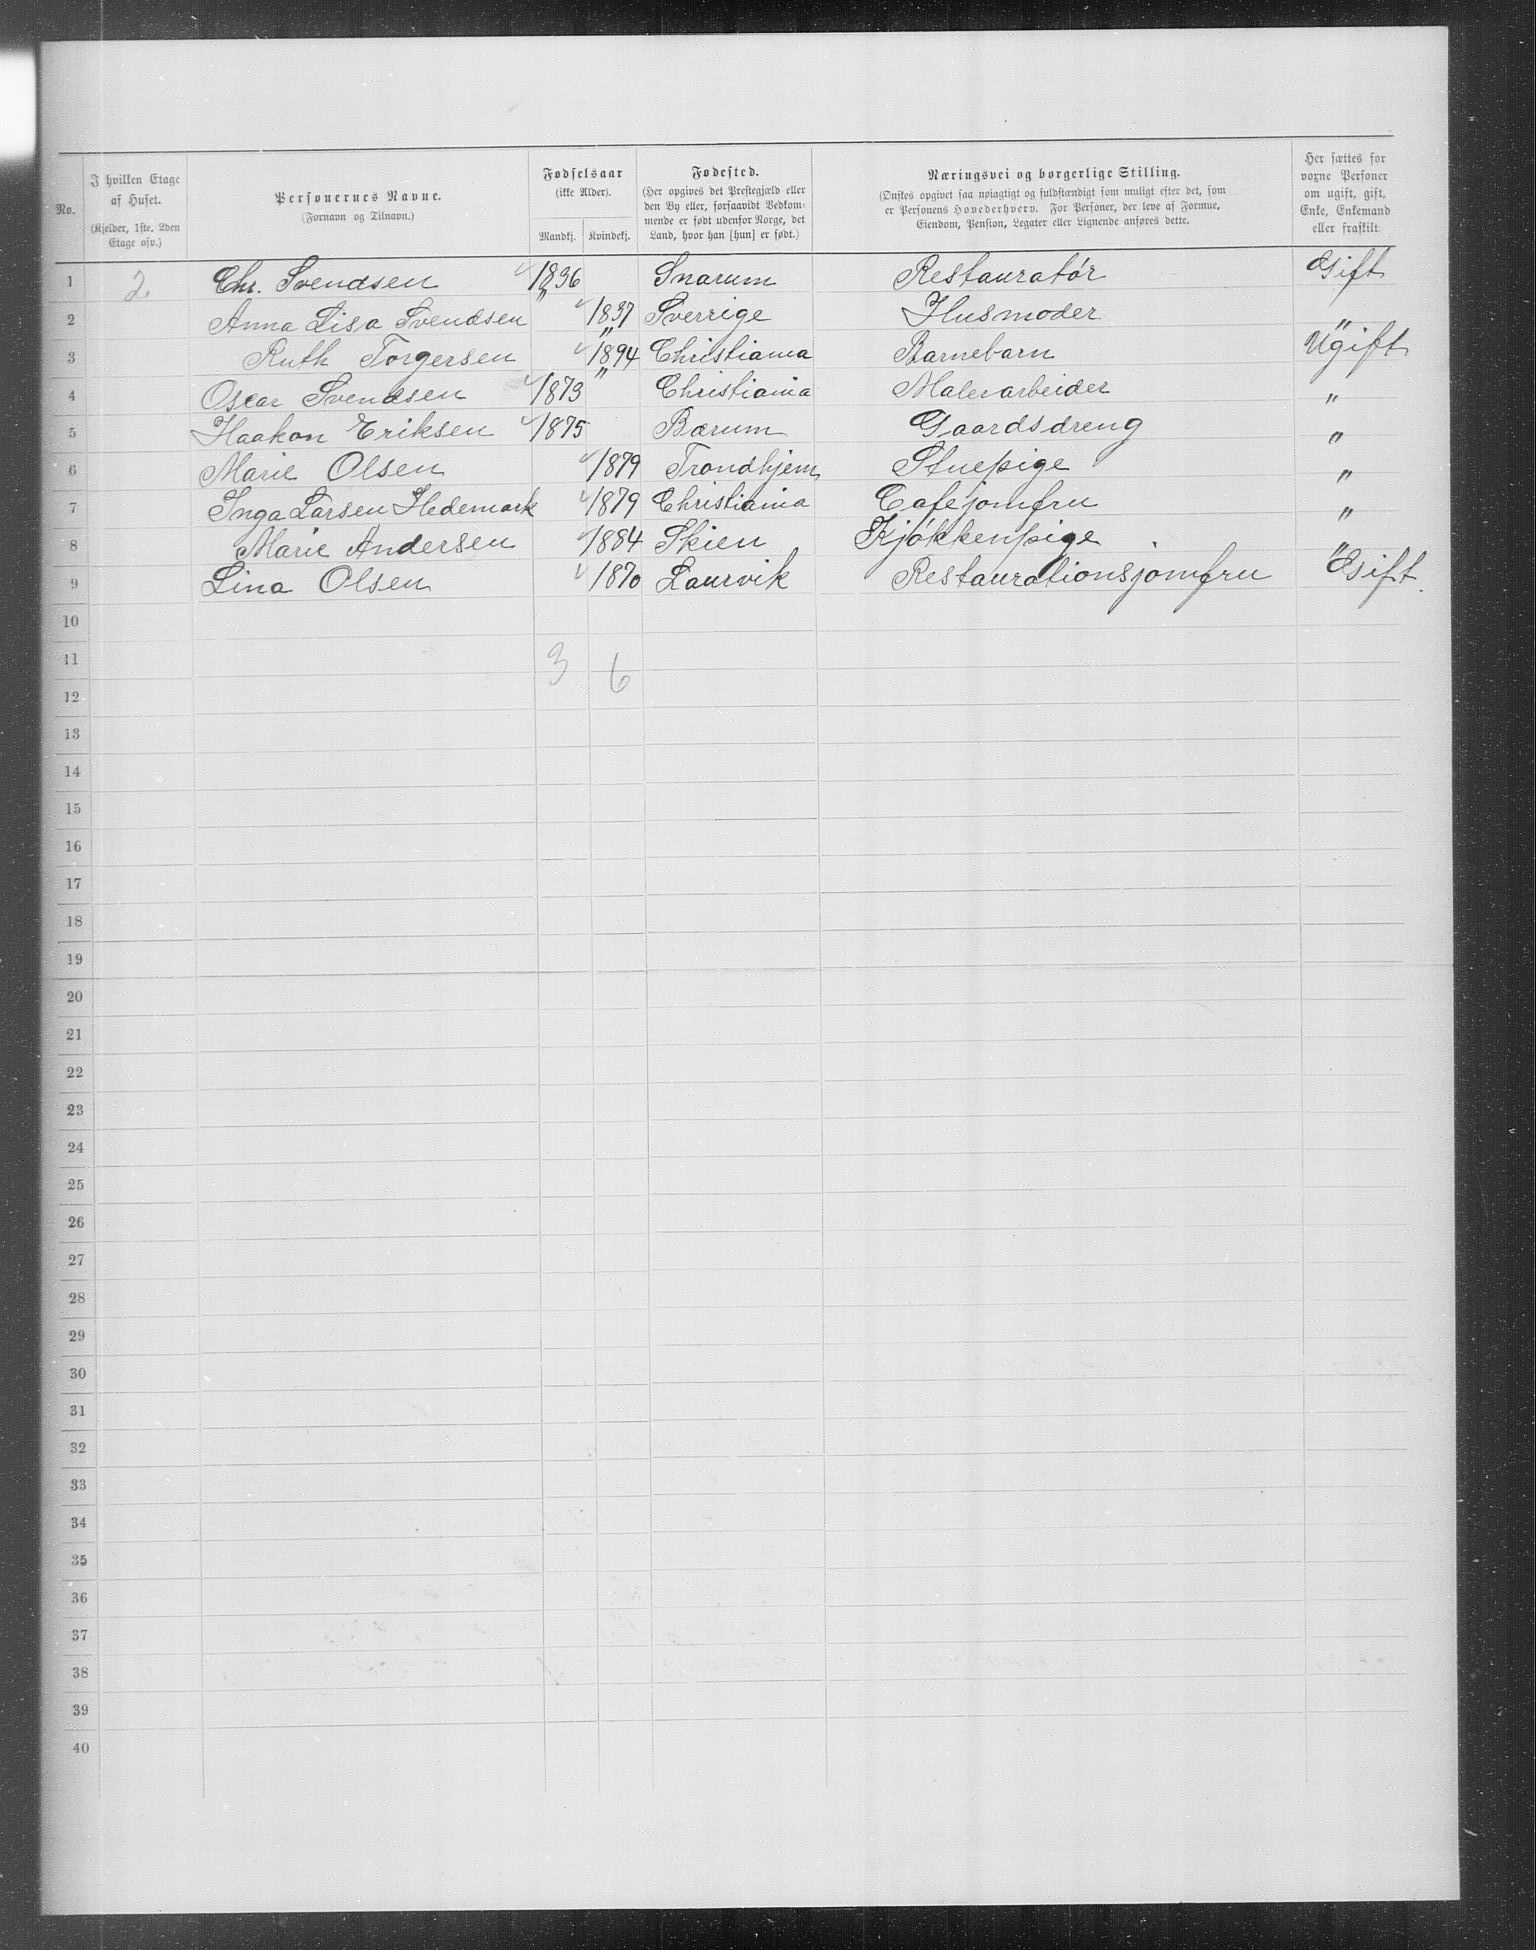 No.
I hvilken Etage af Huset.
(Kjelder, 1ste, 2den Etage osv.)
Personernes Navne.
(Fornavn og Tilnavn.)
Fødselsaar
(ikke Alder).
Mandkj. Kvindekj.
Fødested.
(Her opgives det Prestegjæld eller den By eller, forsaavidt Vedkommende er født udenfor Norge, det Land, hvor han [hun] er født.)
Næringsvei og borgerlige Stilling.
(Ønskes opgivet saa nøiagtigt og fuldstændigt som muligt efter det, som er Personens Hovederhverv. For Personer, der leve af Formue, Eiendom, Pension, Legater eller Lignende anføres dette.
Her sættes for voxne Personer om ugift, gift, Enke, Enkemand eller fraskilt
1 2. Chr. Svendsen 1836 Snarum Restauratór Gift
2 Anna Lisa Svendsen 1837 Sverrige Husmoder "
3 Ruth Torgersen 1894 Christiania Barnebarn Ugift
4 Oscar Svendsen 1873 Christiania Malerarbeider "
5 Haakon Eriksen 1875 Bærum Gaardsdreng "
6 Marie Olsen 1879 Trondhjem Stuepige "
7 Inga Larsen Hedemark 1879 Christiania Cafejomfru "
8 Marie Andersen 1884 Skien Kjøkkenpige "
9 Lina Olsen 1870 Laurvik Restaurationsjomfru Gift.
10
11 3 6
12
13
14
15
16
17
18
19
20
21
22
23
24
25
26
27
28
29
30
31
32
33
34
35
36
37
38
39
40